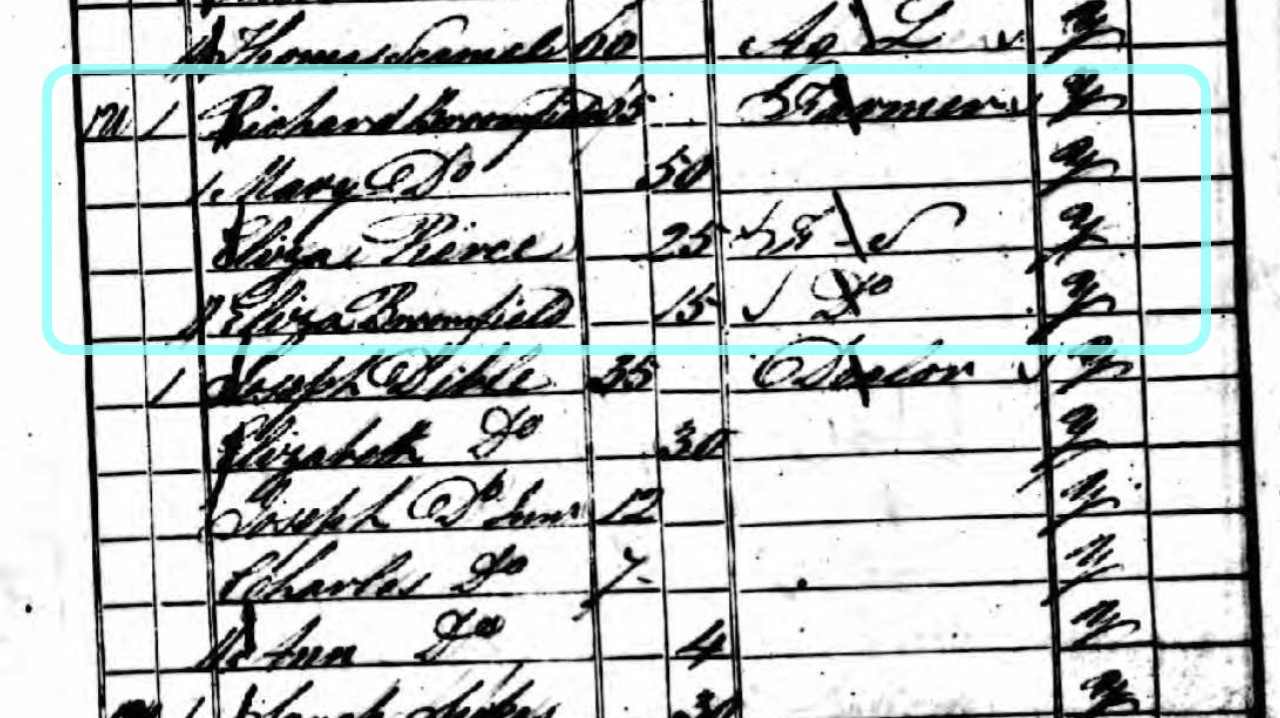 Thomas 60 Ag L y
1 Richard Broomfield 25 Farmer y
Mary Do 50 y
Eliza Pierce 25 F S y
Eliza Broomfield 15 Do y
1 Joseph Dible 35 y
Elizabeth Do 30 y
Joseph Do Junr 12 y
Charles Do 7 y
Ann Do 4 y
1 Sarah 30 y